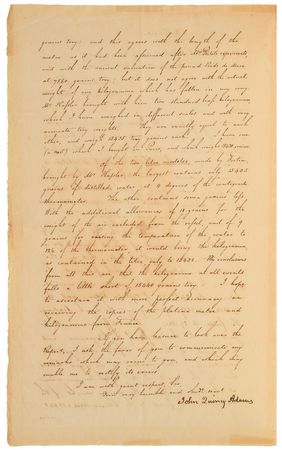 grains troy; and this agrees with the length of the
metre as it had been assumed after
and with the current valuation of the pound Poids de Marc
at 7560 grains troy; but it does not agree with the actual
weight of any kilogramme which has fallen in my way
Mr Hassler brought with him two standard kilogrammes
which I have weighed in different scales and with very
accurate troy weights. They are exactly equal to each
other, and weigh 15435 troy grains each. I have one
which I bought in Paris, and which weighs
Of the two litre models, made by Fortin
brought by Mr. Hassler, the largest contains only 15405
grains of distilled water, at 4 degrees of the centigrade
thermometer. The other contains seven grains less.
With the additional allowance of 18 grains for the
weight of the air excluded from the vessel, and of 9
grains for varying the temperature of the water to
of the thermometer it would bring the kilogramme
as contained in the litre only to 15432. My conclusions
from all this are, that the kilogramme at all events
falls a little short of 15440 grains troy. I hope
to ascertain it with more perfect accuracy on
receiving the copies of the platina metre and
kilogramme from France
If you have leisure to look over the
Report, I ask the favor of you to communicate any
remarks which may occur to you, and which may
enable me to rectify its errors.
I am with great respect, Sir,
Your very humble and
John Quincy Adams